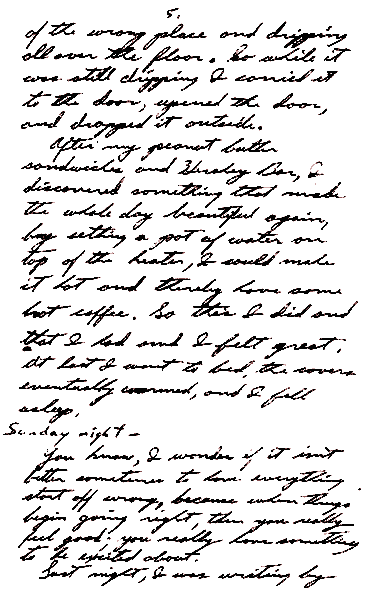 5.
of the wrong place and dripping
all over the floor. So while it
was still dripping I carried it
to the door, opened the door,
and dropped it outside.
After my peanut butter
sandwiches and Hershey Bar, I
discovered something that made
the whole day beautiful again,
by setting a pot of water on
top of the heater, I could make
it hot and thereby have some
hot coffee. So this I did and
that I had and I felt great.
At last I went to bed, the covers
eventually warmed, and I fell
asleep.
Sunday night -
You know, I wonder if it isn't
better sometimes to have everything
start off wrong, because when things
begin going right, then you really
feel good; you really have something
to be excited about.
Last night, I was writing by